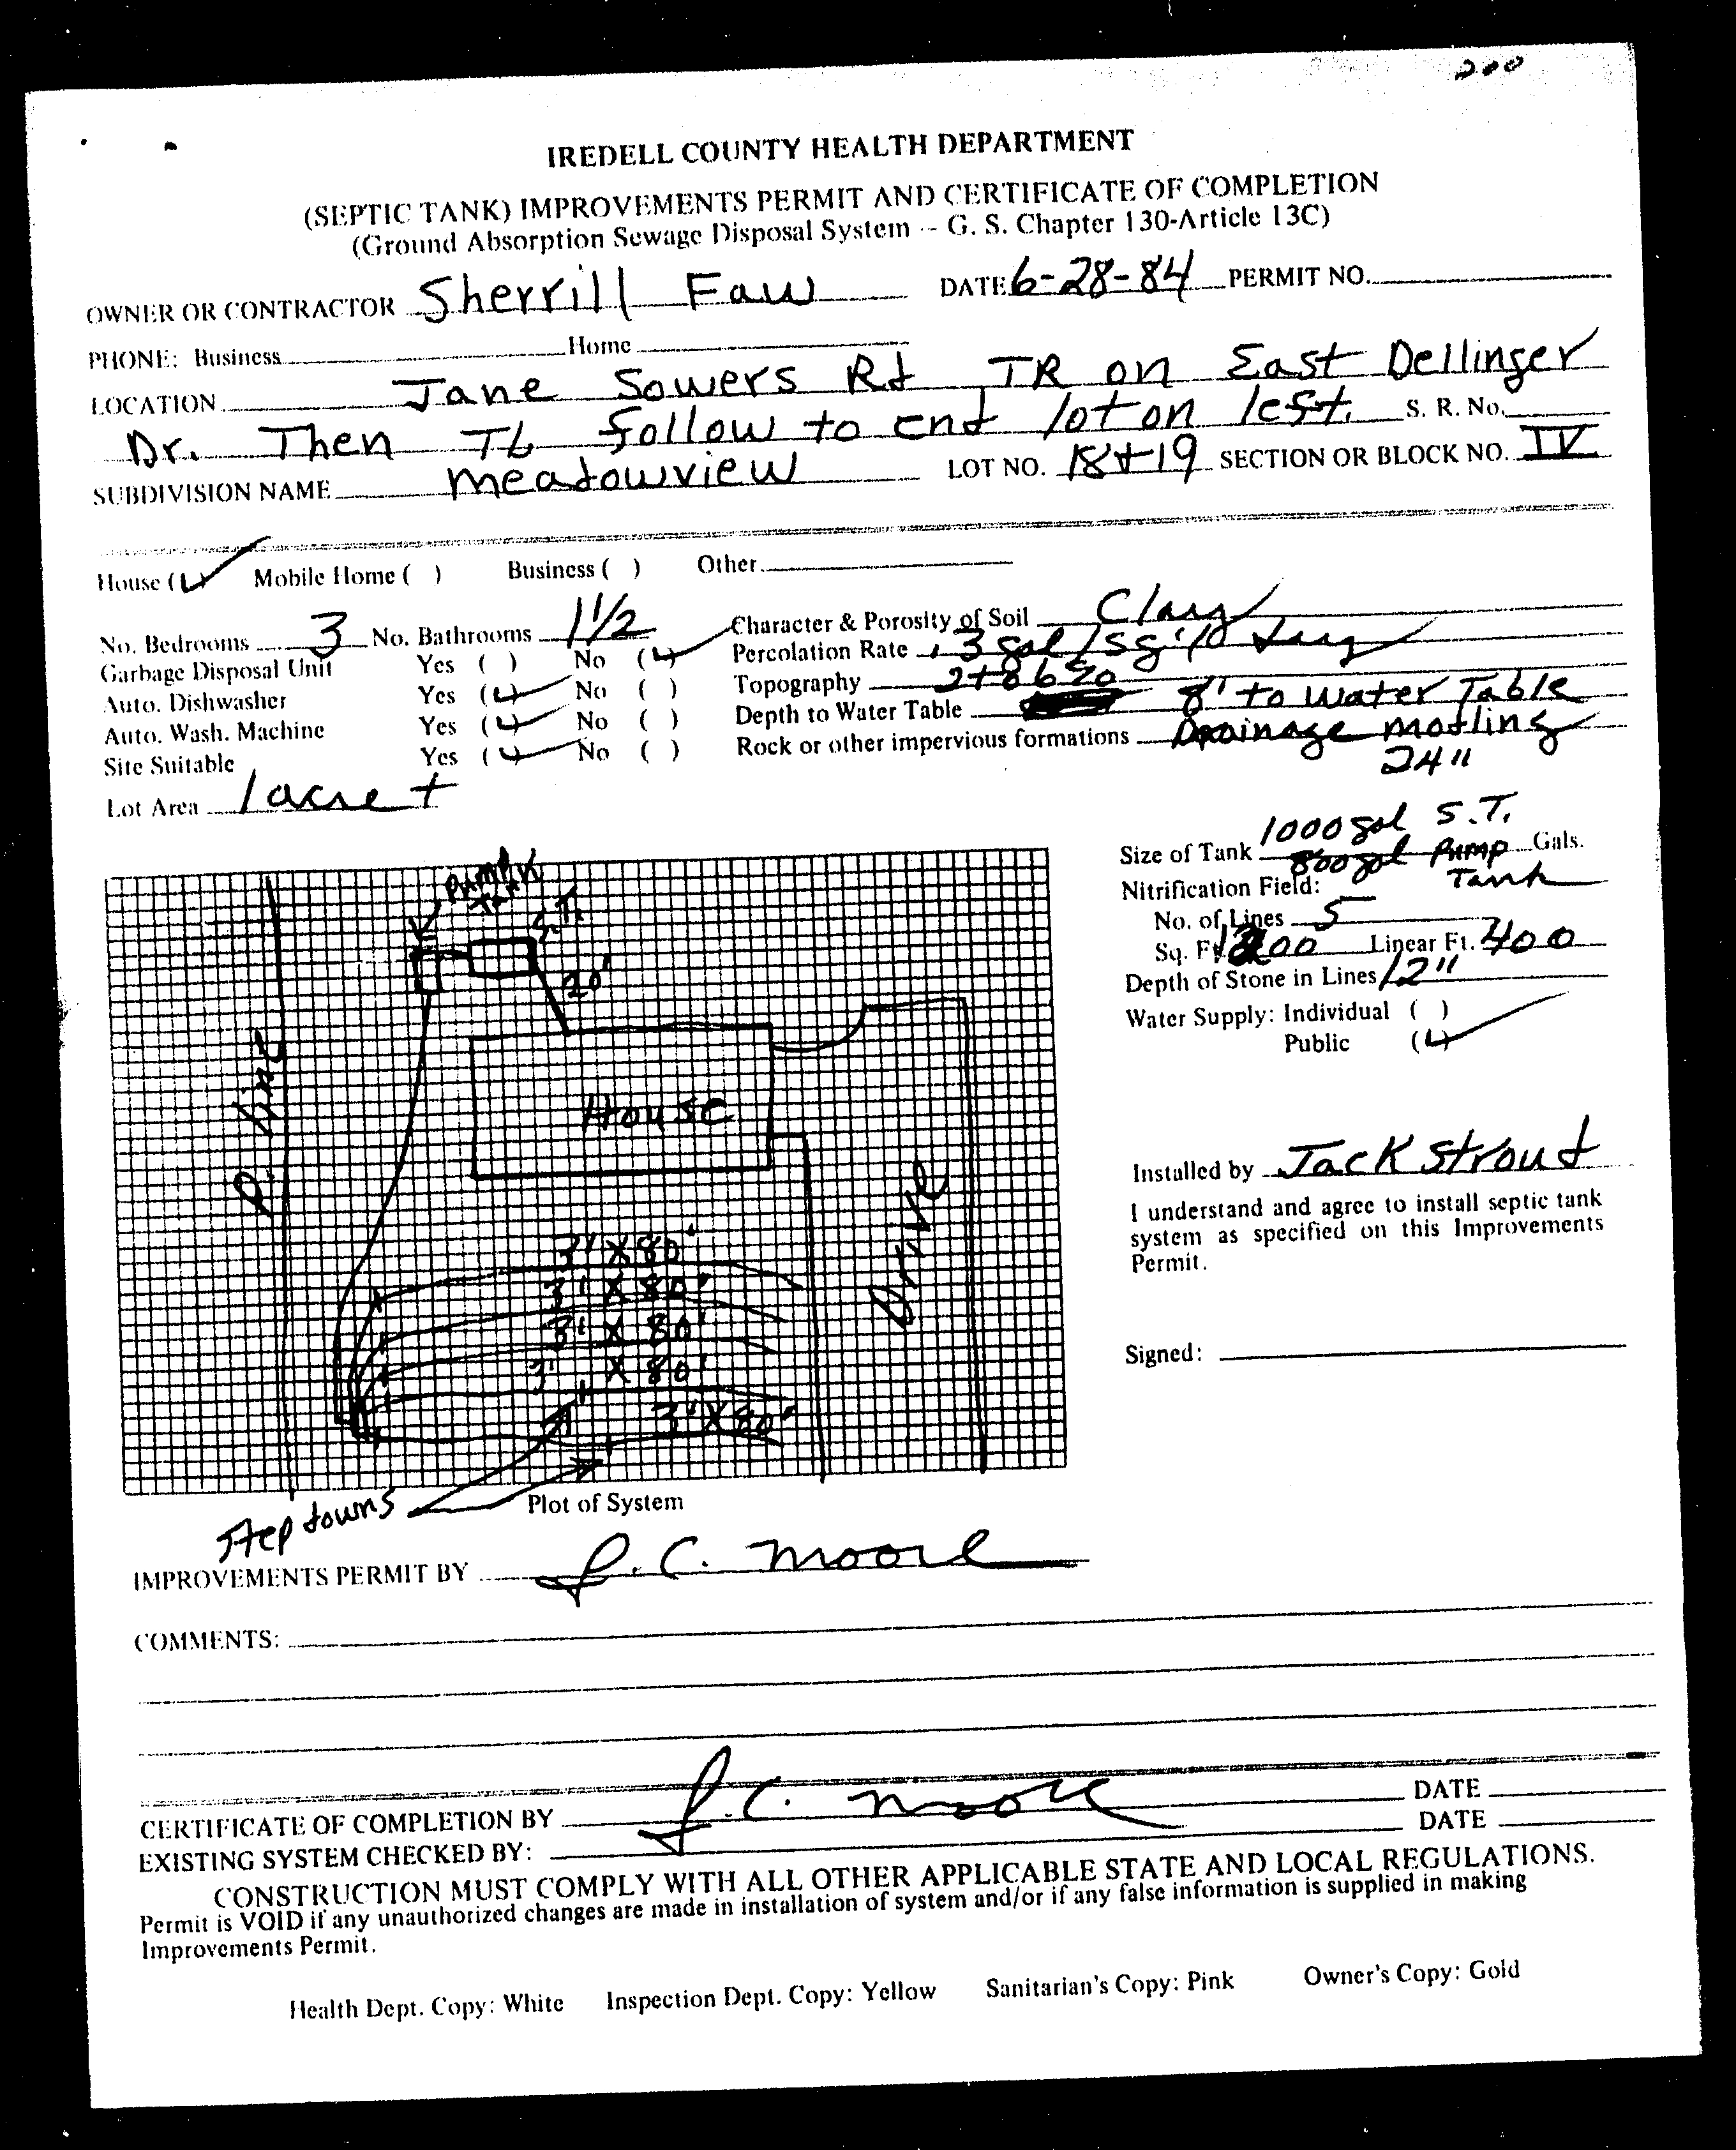 200
IREDELL COUNTY HEALTH DEPARTMENT
(SEPTIC TANK) IMPROVEMENTS PERMIT AND CERTIFICATE OF COMPLETION
(Ground Absorption Sewage Disposal System -- G. S. Chapter 130-Article 13C)
OWNER OR CONTRACTOR Sherrill Faw DATE 6-28-84 PERMIT NO.
PHONE: Business Home
LOCATION Jane Sowers Rd TR on East Dellinger
Dr. Then TL follow to end lot on left. S. R. No.
SUBDIVISION NAME meadowview LOT NO. 18+19 SECTION OR BLOCK NO. IV
House (✓) Mobile Home ( ) Business ( ) Other
No. Bedrooms 3 No. Bathrooms 1 1/2 Character & Porosity of Soil Clay
Garbage Disposal Unit Yes ( ) No (✓) Percolation Rate .3 gal/sq
Auto. Dishwasher Yes (✓) No ( ) Topography
Auto. Wash. Machine Yes (✓) No ( ) Depth to Water Table 8' to Water Table
Site Suitable Yes (✓) No ( ) Rock or other impervious formations Drainage motling
24"
Lot Area 1 acre +
Size of Tank 1000 gal S.T.
800 gal Pump Gals.
Tank
Nitrification Field:
No. of Lines 5
Sq. Ft. 1200 Linear Ft. 400
Depth of Stone in Lines 12"
Water Supply: Individual ( )
Public (✓)
Installed by Jack Stroud
I understand and agree to install septic tank
system as specified on this Improvements
Permit.
Signed:
Pump
Tank
S.T.
20'
P. line
House
Drive
3' X 80'
3' X 80'
3' X 80'
3' X 80'
3' X 80'
Step downs
Plot of System
IMPROVEMENTS PERMIT BY J. C. Moore
COMMENTS:
CERTIFICATE OF COMPLETION BY J. C. Moore DATE
EXISTING SYSTEM CHECKED BY: DATE
CONSTRUCTION MUST COMPLY WITH ALL OTHER APPLICABLE STATE AND LOCAL REGULATIONS.
Permit is VOID if any unauthorized changes are made in installation of system and/or if any false information is supplied in making
Improvements Permit.
Health Dept. Copy: White Inspection Dept. Copy: Yellow Sanitarian's Copy: Pink Owner's Copy: Gold